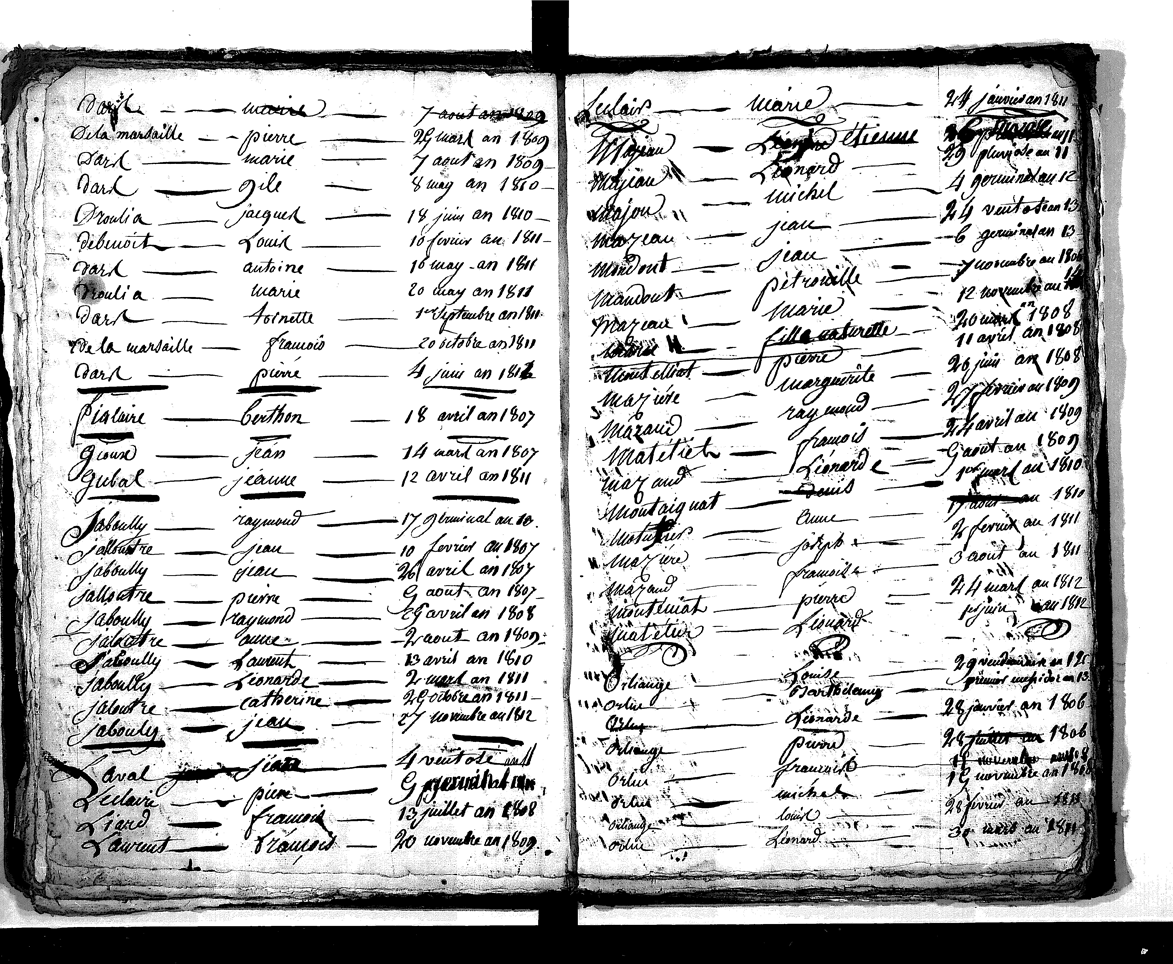 dark — marie — 7 aout an 1809
De la marsaille — pierre — 29 mars an 1809
Dark — marie — 7 aout an 1809
dark — gile — 8 may an 1810
Droulia — jacques — 18 juin an 1810
debenoit — Louis — 10 fevrier an 1811
dark — antoine — 10 may an 1811
Droulia — marie — 20 may an 1811
dark — toinette — 1er septembre an 1811
De la marsaille — francois — 20 octobre an 1811
dark — pierre — 4 juin an 1812
berthon — 18 avril an 1807
gioux — jean — 14 mars an 1807
gubal — jeanne — 12 avril an 1811
jaboully — raymond — 17 germinal an 10
jalloutre — jean — 10 fevrier an 1807
jaboully — jean — 26 avril an 1807
jalloutre — pierre — 9 aout an 1807
jaboully — raymond — 29 avril an 1808
jaloutre — anne — 2 aout an 1809
jaboully — Laurent — 13 avril an 1810
jaboully — Léonarde — 2 mars an 1811
jaloutre — catherine — 29 octobre an 1811
jabouly — jean — 27 novembre an 1812
Laval — jean — 4 ventose an 11
Leclaire — pierre — 9 germinal an
Liard — francois — 13 juillet an 1808
Laurent — francois — 20 novembre an 1809
Leclair — marie — 24 janvier an 1811
Mazeau — étienne
Mazeau — Léonard — 29 pluviose an 11
Majou — michel — 4 germinal an 12
mazeau — jean — 24 ventose an 13
Mondont — jean — 6 germinal an 13
mandont — pétronille — 7 novembre an 1806
mazeau — marie — 12 novembre an
fille naturelle — 20 mars an 1808
montelliat — pierre — 11 avril an 1808
mazière — marguerite — 26 juin an 1808
mazaud — raymond — 27 fevrier an 1809
matétiet — francois — 24 avril an 1809
mazaud — Léonarde — 9 aout an 1809
Montaignat — denis — 1er mars an 1810
anne — 17 aout an 1810
mazière — joseph — 2 fevrier an 1811
mazaud — francoise — 3 aout an 1811
monteniat — pierre — 24 mars an 1812
Léonard — an 1812
Orliange — Louise — 29 vendemiaire an
Orlue — Barthelemy — premier messidor an 13
Orlue — Léonarde — 28 janvier an 1806
Orliange — pierre — 28 juillet an 1806
Orlue — francois — 11 novembre an 1808
Orlue — michel — 19 novembre an 1808
orliange — louis — 28 fevrier an 1811
orlue — Léonard — 30 mars an 1811